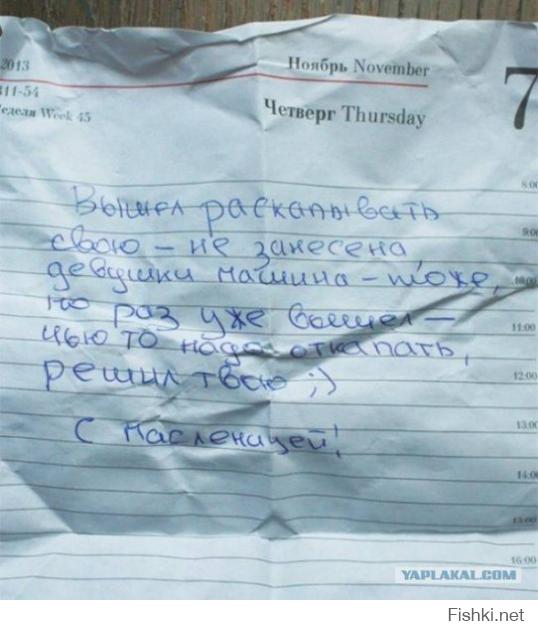 2013
Ноябрь November
7
311-54
Неделя Week 45
Четверг Thursday
8:00
9:00
10:00
11:00
12:00
13:00
14:00
15:00
16:00
Вышел раскапывать
свою – не занесена,
девушки машина – тоже,
но раз уже вышел –
чью то надо откапать,
решил твою ;)
С Масленицей!
YAPLAKAL.COM
Fishki.net